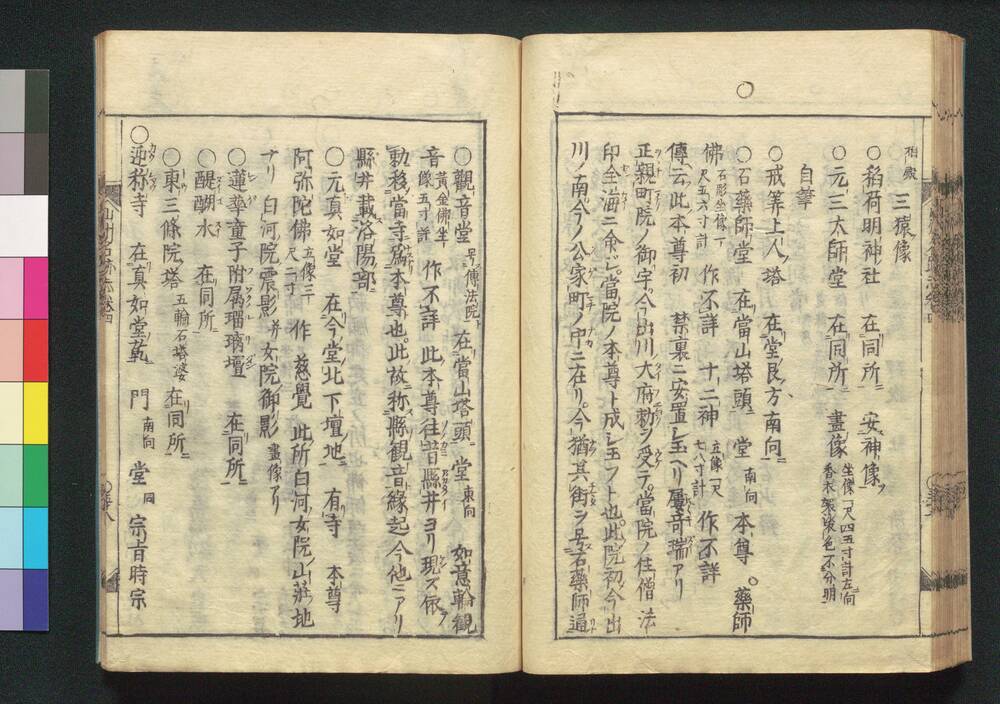 相殿 三猿像
○稻荷明神社 在同所 安神像 坐像一尺四五寸計左向
○元三大師堂 在同所 畫像 香衣袈裟色不分明
自筆
○戒筭上人塔 在堂艮方南向
○石藥師堂 在當山塔頭 堂 南向 本尊 藥師
佛 石彫坐像丁尺五六寸計 作不詳 十二神 立像一尺七八寸計 作不詳
傳云此本尊初 禁裏ニ安置シ玉ヘリ屢奇瑞アリ
正親町院ノ御宇今出川大府勅ヲ受テ當院ノ住僧法
印全海ニ命ジ當院ノ本尊ト成シ玉フト也此院初今出
川ノ南今ノ公家町ノ中ニ在リ今猶其街ヲ号石藥師通
○觀音堂 号傳法院 在當山塔頭 堂 東向 如意輪觀
音 黃金佛坐像五寸計 作不詳 此本尊往昔縣井ヨリ現ズ依
勅移當寺爲本尊也此故称縣觀音緣起今他ニアリ
縣井載洛陽部
○元真如堂 在今堂北下壇地 有寺 本尊
阿弥陀佛 立像三尺二寸 作 慈覺 此所白河女院山莊地
ナリ 白河院震影并女院御影 畫像アリ
○蓮華童子附属瑠璃壇 在同所
○醍醐水 在同所
○東三條院塔 五輪石塔婆 在同所
○迎称寺 在真如堂乾 門 南向 堂 同 宗旨時宗